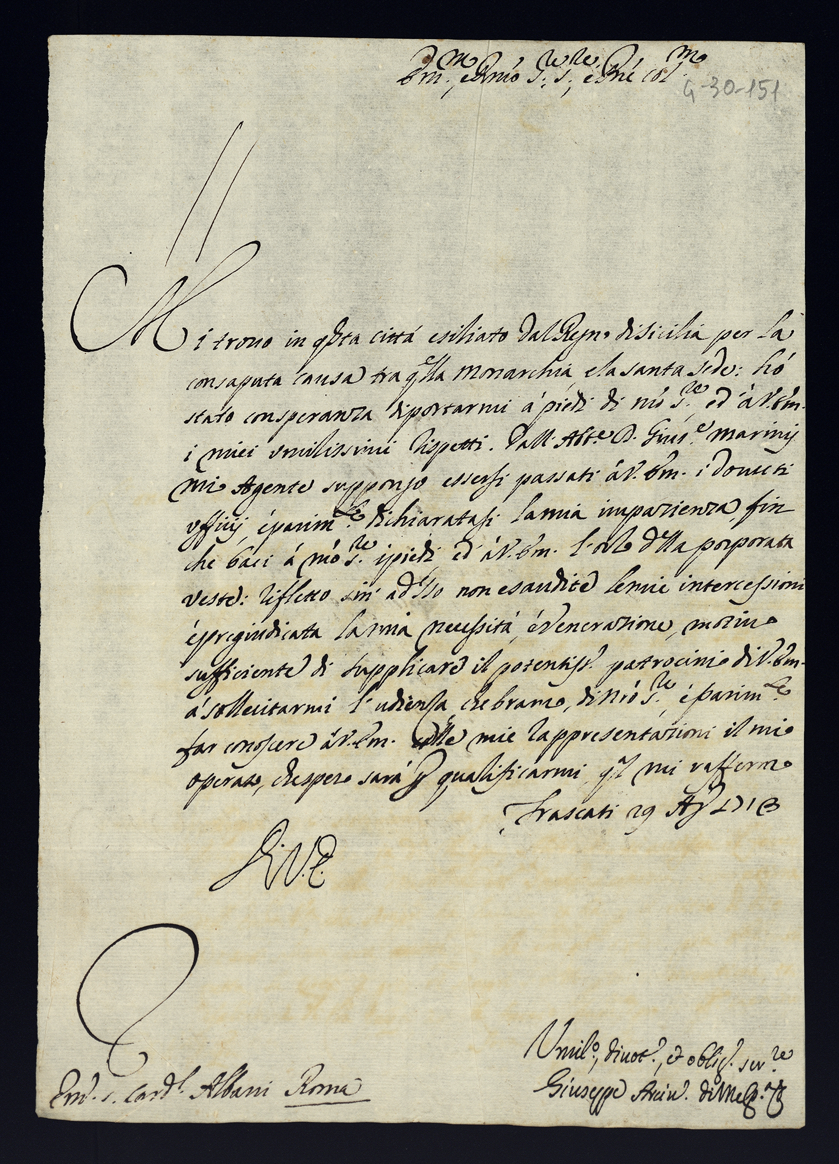 Em.mo, e Rmo S.re, S.re, e Pne Col.mo
G-30-151
Mi trovo in qsta città esiliato dal Regn.o di Sicilia per la
consaputa causa tra qlla Monarchia e la Santa Sede: hò
stato con speranza di portarmi à piedi di nrõ S.re, ed à V. Em.
i miei umilissimi rispetti. Dall'Ab.te D. Gius.e Marinij
mio Agente suppongo essersi passati à V. Em. i dovuti
uffitij, è parim.te dichiaratasi la mia impazienza, fin
che baci à nrõ S.re i piedi ed à V. Em. l'orlo dlla porporata
veste: rifletto sin' adsso non esaudite le mie intercessioni
è pregiudicata la mia necessità, è venerazione, motivo
sufficiente di supplicare il potentiss.o patrocinio di V. Em.
à sollecitarmi l'udienza che bramo, di nrõ S.re, è parim.te
far conoscere à V. Em. colle mie rappresentazioni il mio
operato, che spero sarà p qualificarmi, ql mi raffermo
Frascati 29 Ag.to 1713
Di V. E.
Umil.o, divot.o, et oblig.o ser.re
Em.o S. Card.l Albani Roma
Giuseppe Arciv.o di